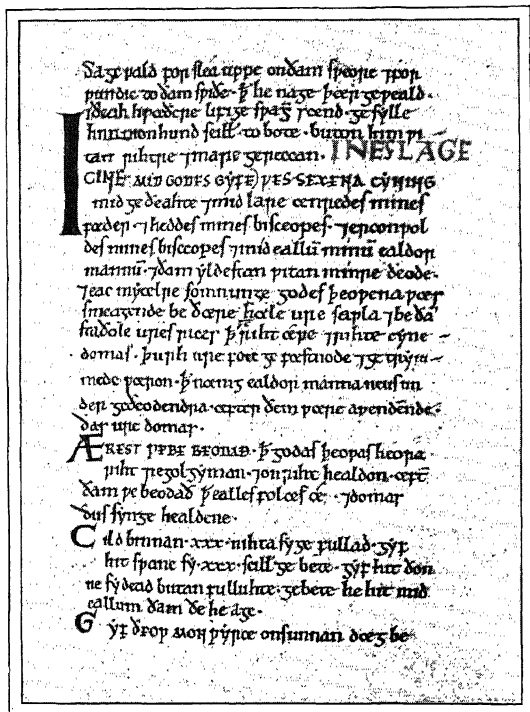 ƿund ie to ðam spiðe · þ he nage þær geƿeald ·
him mon hund scill to bote · buton him ƿi
tan rihtre ⁊ mare gereccan · INES LAGE
IC INE · MID GODES GYFE ǷES SEXENA CYNING
mid geðeahte ⁊ mid lare cenredes mines
fæder · ⁊ heddes mines bisceopes · ⁊ erconƿol
des mines bisceopes ⁊ mid eallū minū ealdor
mannū · ⁊ ðam yldestan ƿitan minre ðeode ·
⁊ eac mycelre somnunge godes þeoƿena ƿæs
smeagende be ðære hæle ure saƿla ⁊ be ðā
staðole ures rices þ riht æƿe ⁊ rihte cyne
domas · þurh ure folc gefæstnode ⁊ getrym
mede ƿæron · þ nænig ealdormanna ne us un
der geðeodendra æfter ðem ƿære aƿendende ·
ðas ure domas ·
ÆREST ǷE BEODAÐ · þ godas þeoƿas heora
riht regol gyman · ⁊ on riht healdon · æft
ðam ƿe beodað þ ealles folces æƿ ⁊ domas
ðus synge healdene ·
Cild binnan · xxx · nihta sy gefullad · gyf
hit sƿa ne sy · xxx · scill gebete · gyf hit ðon
ne sy dead butan fulluhte · gebete he hit mid
eallum ðam ðe he age ·
Gyf ðeoƿ mon ƿyrce on sunnan dæg be